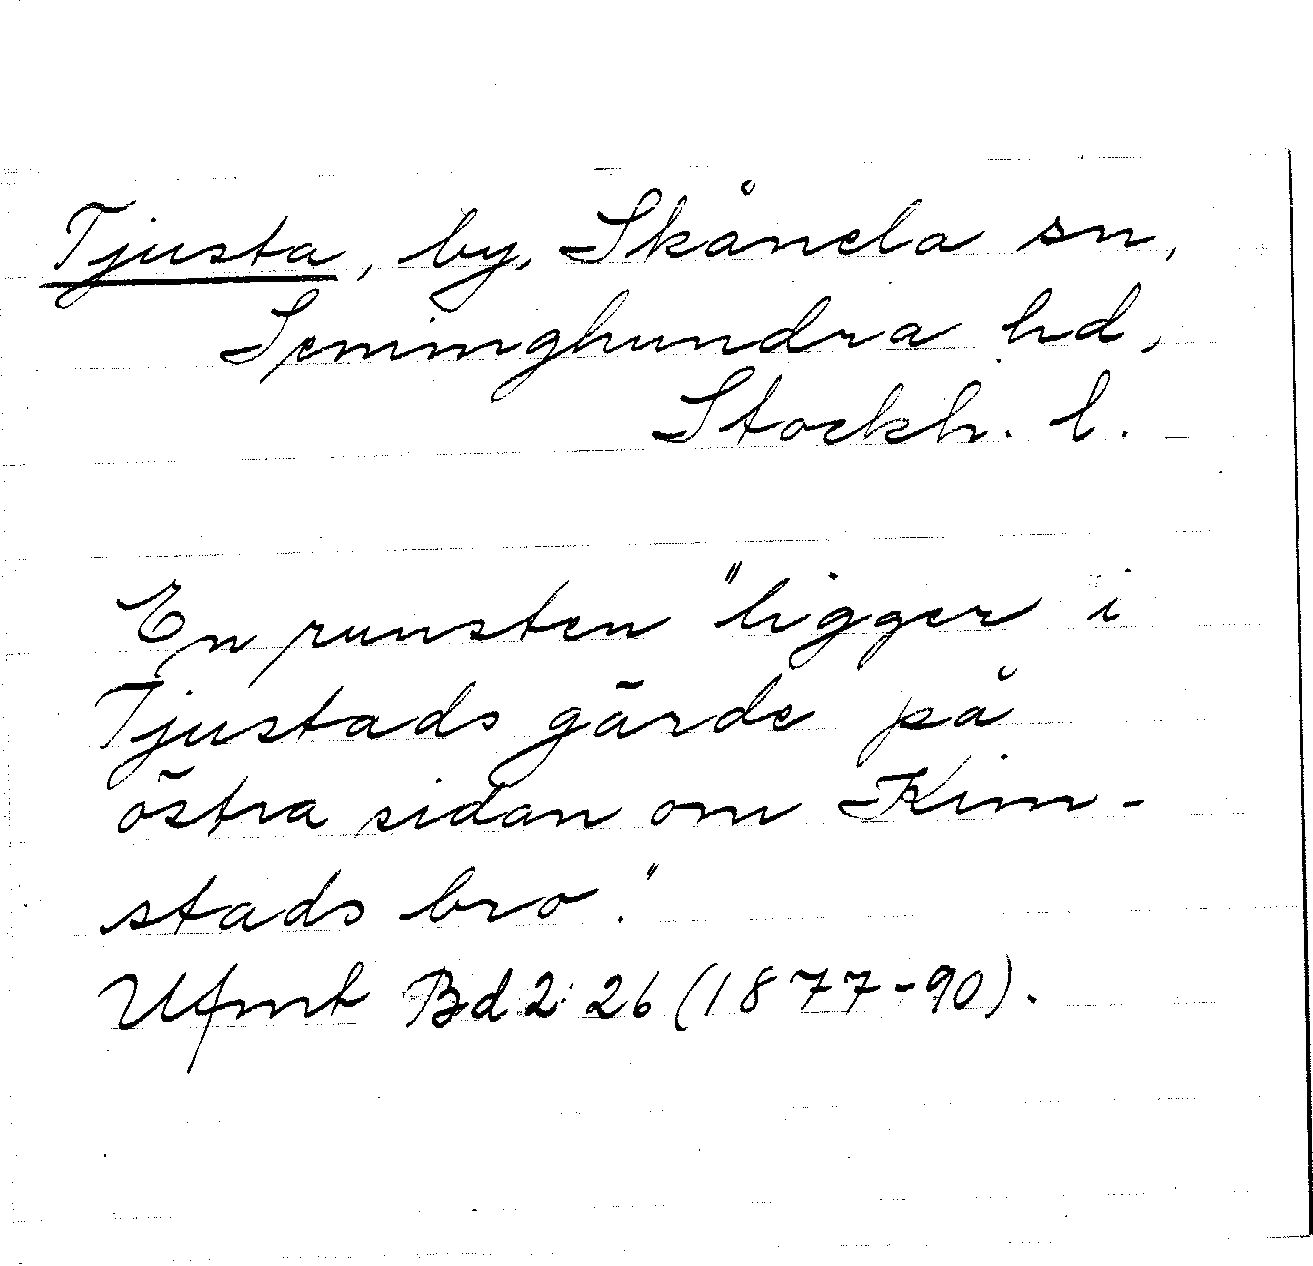 Tjusta, by, Skånela sn,
Seminghundra hd,
Stockh. l.
En runsten "ligger i
Tjustads gärde på
östra sidan om Kim-
stads bro."
Ufmt Bd 2: 26 (1877-90).